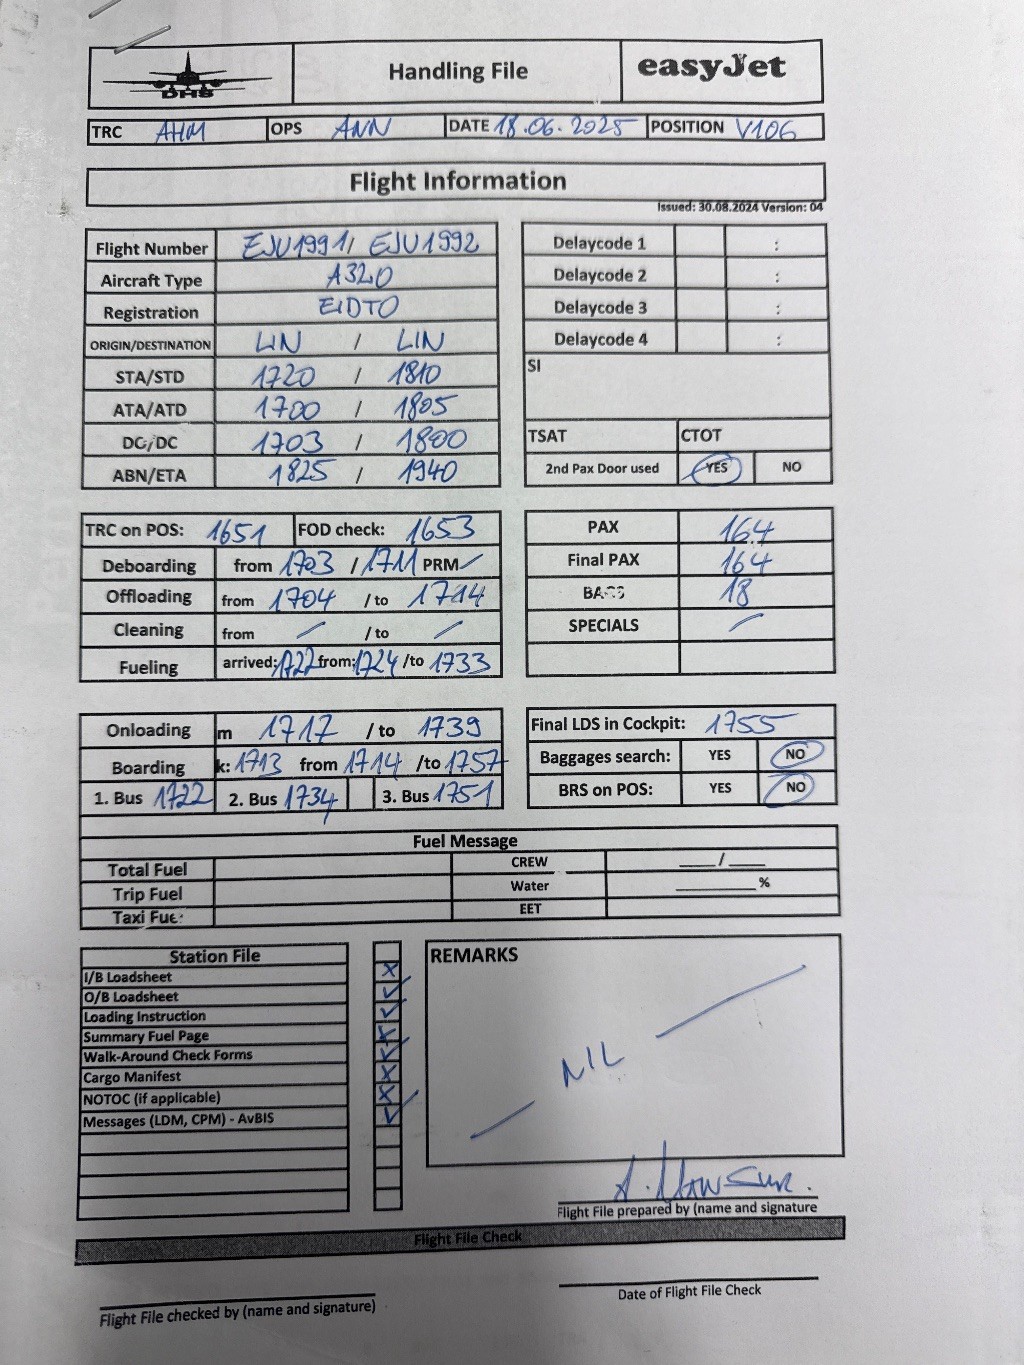 DHS Handling File easyJet
TRC AHM OPS ANN DATE 18.06.2025 POSITION V106
Flight Information
Issued: 30.08.2024 Version: 04
Flight Number EJU1991/ EJU1992
Aircraft Type A320
Registration EIDTO
ORIGIN/DESTINATION LIN / LIN
STA/STD 1720 / 1810
ATA/ATD 1700 / 1805
DC/DC 1703 / 1800
ABN/ETA 1825 / 1940
Delaycode 1 :
Delaycode 2 :
Delaycode 3 :
Delaycode 4 :
SI
TSAT CTOT
2nd Pax Door used YES NO
TRC on POS: 1651 FOD check: 1653
Deboarding from 1703 / 1711 PRM /
Offloading from 1704 / to 1714
Cleaning from / / to /
Fueling arrived: 1722 from: 1724 /to 1733
PAX 164
Final PAX 164
BAGS 18
SPECIALS /
Onloading m 1717 / to 1739
Boarding k: 1713 from 1714 /to 1757
1. Bus 1722 2. Bus 1734 3. Bus 1751
Final LDS in Cockpit: 1755
Baggages search: YES NO
BRS on POS: YES NO
Fuel Message
Total Fuel CREW ____/____
Trip Fuel Water ________%
Taxi Fue: EET
Station File
I/B Loadsheet X
O/B Loadsheet ✓
Loading Instruction ✓
Summary Fuel Page X
Walk-Around Check Forms ✓
Cargo Manifest X
NOTOC (if applicable) X
Messages (LDM, CPM) - AvBIS ✓
REMARKS
NIL
Flight File prepared by (name and signature
Flight File Check
Flight File checked by (name and signature)
Date of Flight File Check